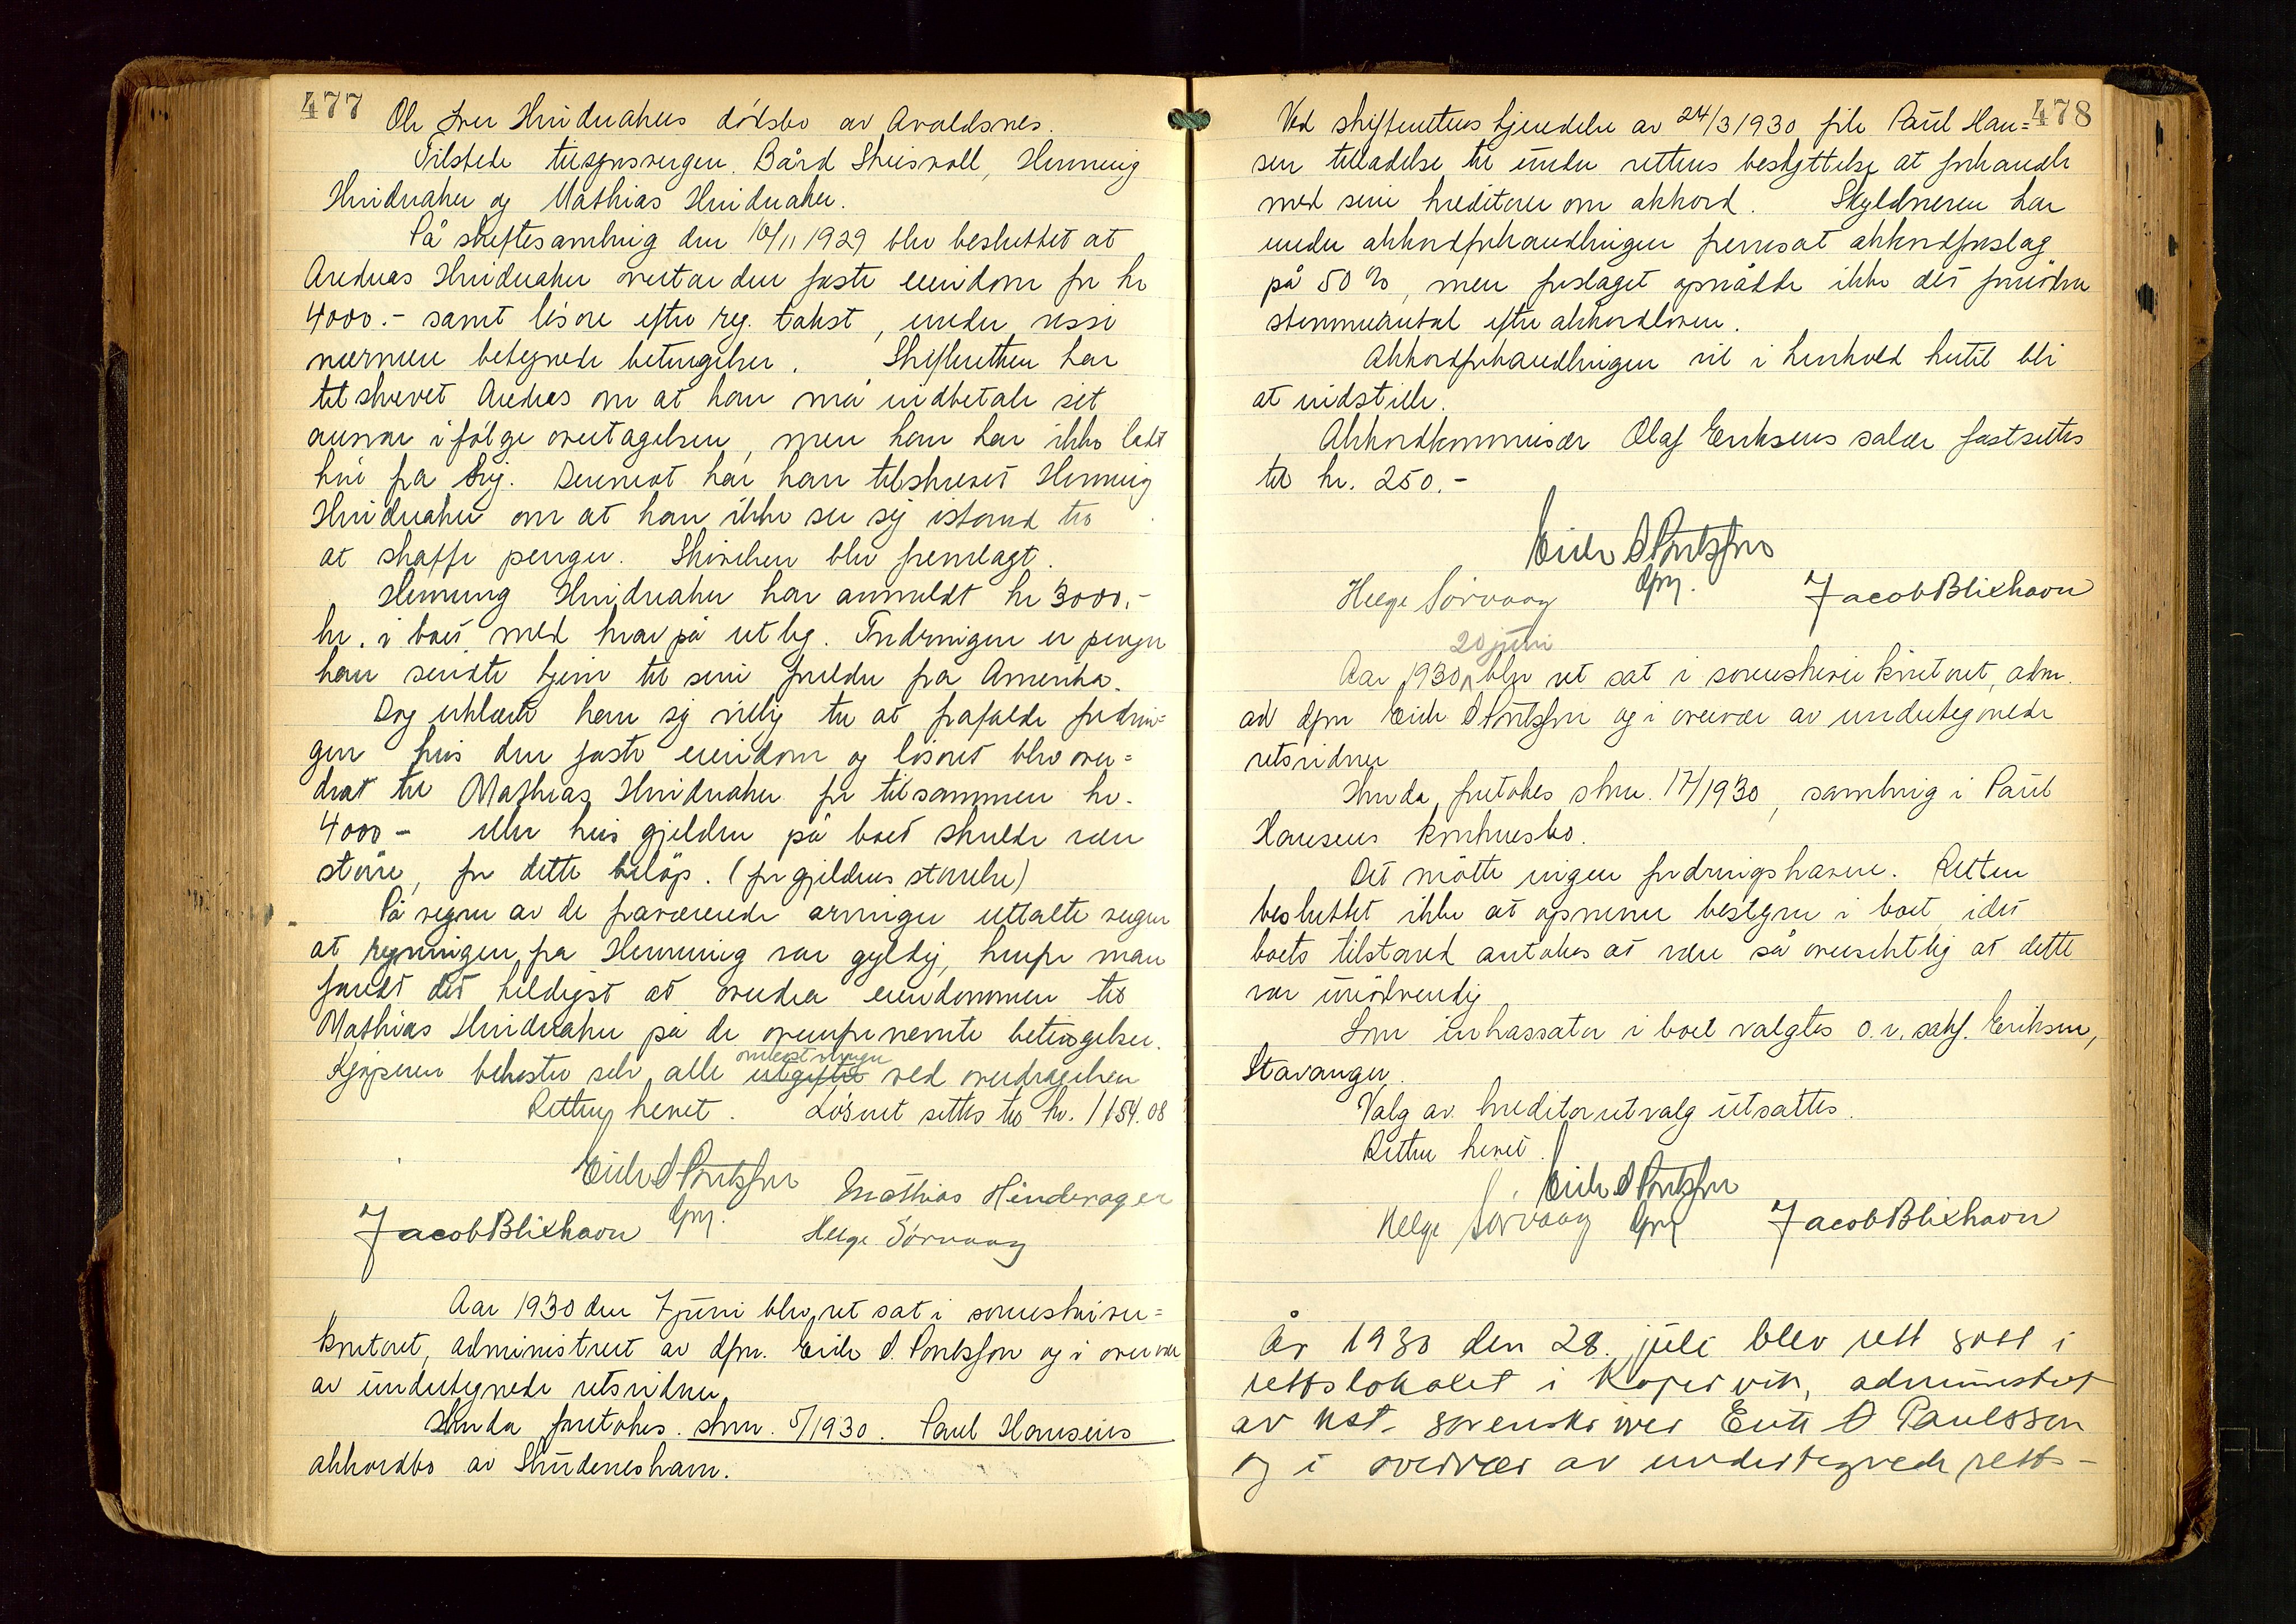 477
Ole Iver Hinderakers dödsbo av Avaldsnes.
Tilstede tilsynsvergen Bård Skeisvoll, Henning
Hinderaker og Mathias Hinderaker.
På skiftesamling den 16/11 1929 blev besluttet at
Andreas Hinderaker overtar den faste eiendom for kr
4000.- samt lösöre efter reg. takst, under visse
nærmere betegnede betingelser. Skifteretten har
tilskrevet Andreas om at han må indbetale sit
ansvar i fölge overtagelsen, men han har ikke latt
höre fra sig. Derimot har han tilskrevet Henning
Hinderaker om at han ikke ser sig istand til
at skaffe penger. Skrivelsen blev fremlagt.
Henning Hinderaker har anmeldt kr 3000.-
kr. i boet med krav på utlegg. Fordringen er penger
han sendte hjem til sine foreldre fra Amerika.
Dog erklærte han sig villig til at frafalde fordrin=
gen hvis den faste eiendom og lösöret blev over=
drat til Mathias Hinderaker for tilsammen kr.
4000 - eller hvis gjelden på boet skulde være
större, for dette belöp. (for gjeldens störrelse)
På vegne av de fraværende arvinger uttalte vergen
at regningen fra Henning var gyldig, hvorfor man
fandt det heldigst at overdra eiendommen til
Mathias Hinderaker på de ovenfor nevnte betingelser.
omkostninger
Kjöperen bekoster selv alle utgifter ved overdragelsen
Retten hevet. Lösöret settes til kr. 1154.08
Eirik D Poulsson
Mathias Hinderager
Jacob Blikhavn
fm.
Helge Sörvaag
Aar 1930 den 7 juni blev ret sat i sorenskriver=
kontoret, administrert av dfm. Eirik D. Poulsson og i overvær
av undertegnede retsvidner.
Herda foretokes snr. 5/1930. Paul Hansens
akkordbo av Skudeneshavn.
478
Ved skifterettens kjendelse av 24/3 1930 fik Paul Han=
sen tilladelse til under rettens beskyttelse at forhandle
med sine kreditorer om akkord. Skyldneren har
under akkordforhandlingen fremsat akkordforslag
på 50 %, men forslaget opnådde ikke det fornödne
stemmeantal efter akkordloven.
Akkordforhandlingen vil i henhold hertil bli
at indstille.
Akkordkommissær Olaf Eriksens salær fastsettes
til kr. 250.-
Eirik D Poulsson
fm.
Helge Sörvaag
Jacob Blikhavn
20 juni
Aar 1930 blev ret sat i sorenskriverkontoret, adm.
av dfm Eirik D Poulsson og i overvær av undertegnede
retsvidner
Herda foretokes snr. 17/1930, samling i Paul
Hansens konkursbo.
Det mötte ingen fordringshavere. Retten
besluttet ikke at opnevne bestyrer i boet, idet
boets tilstand antokes at være så oversiktlig at dette
var unödvendig
Som inkassator i boet valgtes o.r. sakf. Eriksen,
Stavanger.
Valg av kreditorutvalg utsattes.
Retten hevet.
Eirik D Poulsson
Helge Sörvaag
fm
Jacob Blikhavn
År 1930 den 28. juli blev rett satt i
rettslokalet i Kopervik, administrert
av kst. sorenskriver Eirik D Paulsson
og i overvær av undertegnede retts-